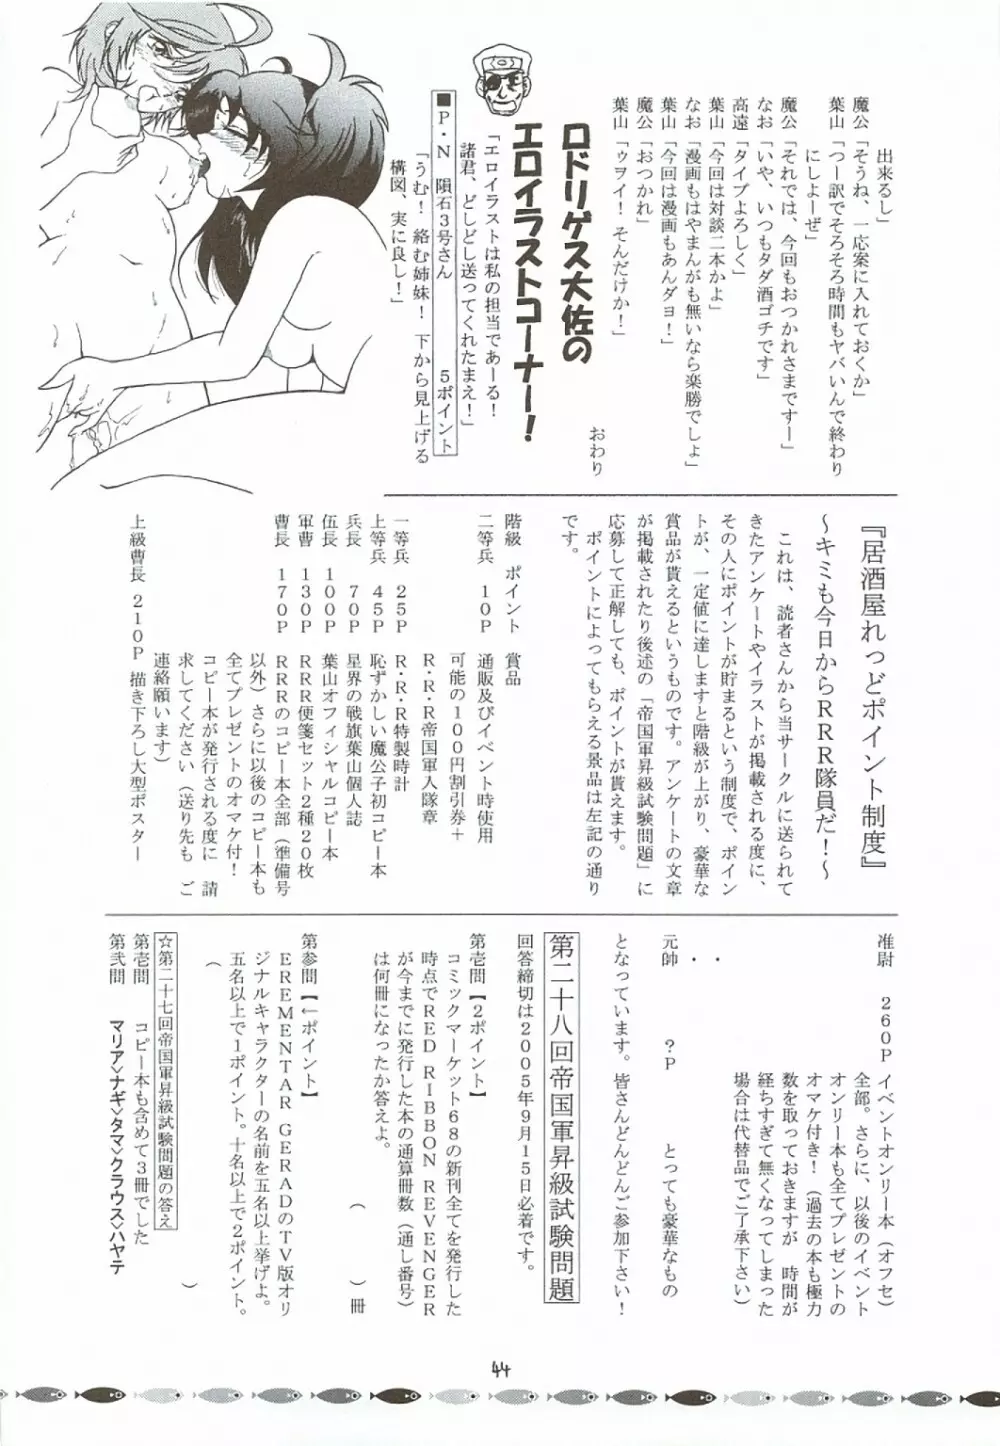 出来るし」
魔公「そうね、一応案に入れておくか」
葉山「つー訳でそろそろ時間もヤバいんで終わり
にしよーぜ」
魔公「それでは、今回もおつかれさまですー」
なお「いや、いつもタダ酒ゴチです」
高遠「タイプよろしく」
葉山「今回は対談二本かよ」
なお「漫画もはやまんがも無いなら楽勝でしょ」
葉山「今回は漫画もあんダヨ!」
魔公「おつかれ」
葉山「ゥヲイ! そんだけか!」
おわり
ロドリゲス大佐の
エロイラストコーナー!
「エロイラストは私の担当であーる!
諸君、どしどし送ってくれたまえ!」
■P・N 隕石3号さん 5ポイント
「うむ! 絡む姉妹! 下から見上げる
構図、実に良し!」
『居酒屋れっどポイント制度』
~キミも今日からRRR隊員だ!~
これは、読者さんから当サークルに送られて
きたアンケートやイラストが掲載される度に、
その人にポイントが貯まるという制度で、ポイン
トが、一定値に達しますと階級が上がり、豪華な
賞品が貰えるというものです。アンケートの文章
が掲載されたり後述の「帝国軍昇級試験問題」に
応募して正解しても、ポイントが貰えます。
ポイントによってもらえる景品は左記の通り
です。
階級 ポイント 賞品
二等兵 10P 通販及びイベント時使用
可能の100円割引券+
R・R・R帝国軍入隊章
一等兵 25P R・R・R特製時計
上等兵 45P 恥ずかしい魔公子初コピー本
兵長 70P 星界の戦旗葉山個人誌
伍長 100P 葉山オフィシャルコピー本
軍曹 130P RRR便箋セット2種20枚
曹長 170P RRRのコピー本全部(準備号
以外)さらに以後のコピー本も
全てプレゼントのオマケ付!
コピー本が発行される度に 請
求してください(送り先も ご
連絡願います)
上級曹長 210P 描き下ろし大型ポスター
准尉 260P イベントオンリー本(オフセ)
全部。さらに、以後のイベント
オンリー本も全てプレゼントの
オマケ付き! (過去の本も極力
数を取っておきますが 時間が
経ちすぎて無くなってしまった
場合は代替品でご了承下さい)
・
・
元帥 ?P とっても豪華なもの
となっています。皆さんどんどんご参加下さい!
第二十八回帝国軍昇級試験問題
回答締切は2005年9月15日必着です。
第壱問【2ポイント】
コミックマーケット68の新刊全てを発行した
時点でRED RIBBON REVENGER
が今までに発行した本の通算冊数(通し番号)
は何冊になったか答えよ。
( )冊
第参問【←ポイント】
EREMENTAR GERADのTV版オリ
ジナルキャラクターの名前を五名以上挙げよ。
五名以上で1ポイント。十名以上で2ポイント。
( )
☆第二十七回帝国軍昇級試験問題の答え
第壱問 コピー本も含めて3冊でした
第弐問 マリア>ナギ>タマ>クラウス>ハヤテ
44